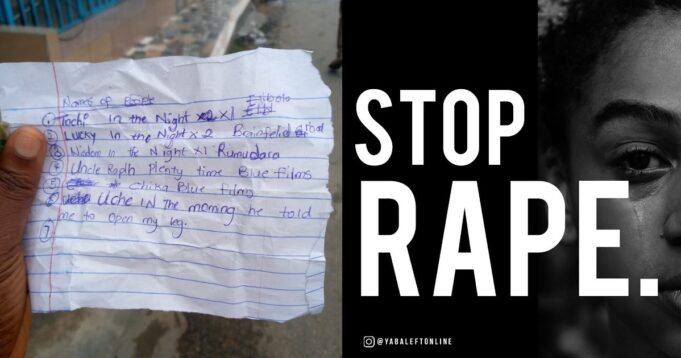 Names of
① Tochi In the Night x1
② Lucky In the Night x2
③ Wisdom In the Night x1 Rumudara
④ Uncle Raph Plenty time Blue films
⑤ Chika Blue films
⑥ Uche IN the morning he told
me to open my leg.
⑦
STOP
RAPE.
@YABALEFTONLINE